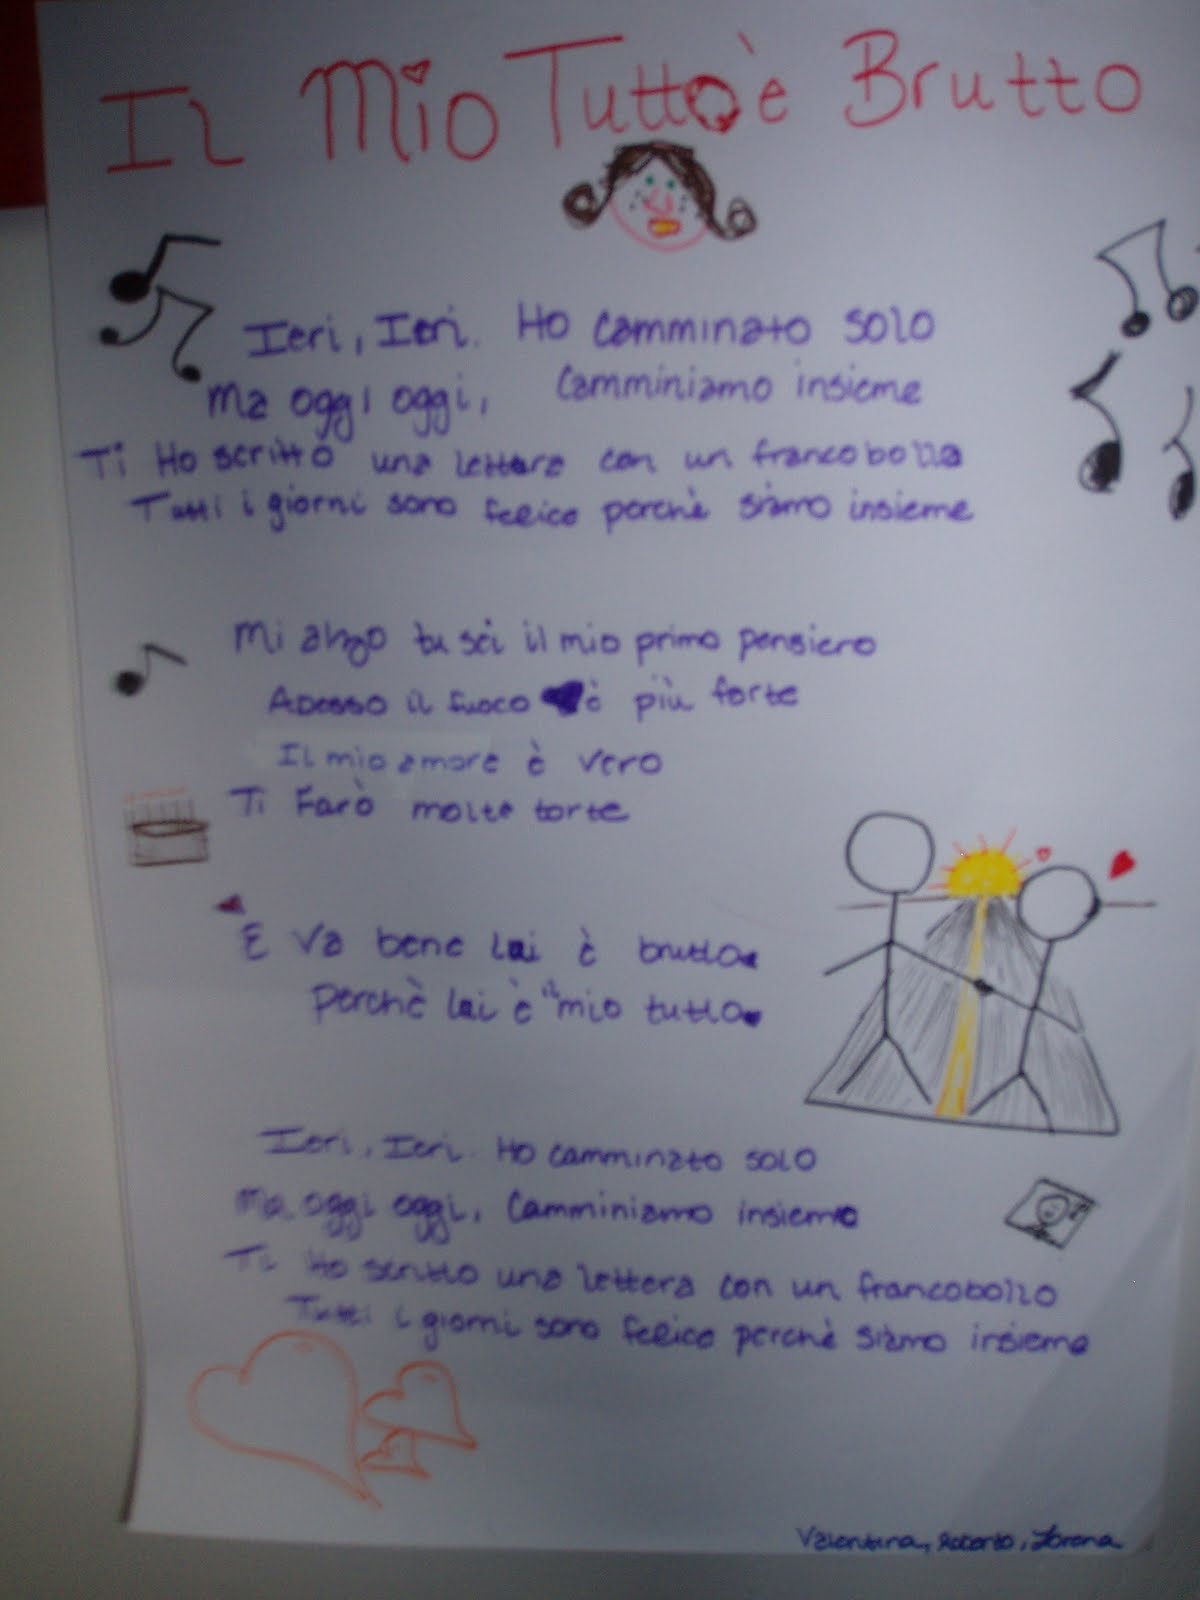 Il Mio Tutto è Brutto
Ieri, Ieri. Ho camminato solo
Ma oggi oggi, Camminiamo insieme
Ti Ho scritto una lettera con un francobollo
Tutti i giorni sono felice perchè siamo insieme
Mi alzo tu sei il mio primo pensiero
Adesso il fuoco è più forte
Il mio amore è vero
Ti Farò molte torte
E Va bene lei è brutta
Perchè lei è il mio tutto
Ieri, Ieri. Ho camminato solo
Ma oggi oggi, Camminiamo insieme
Ti Ho scritto una lettera con un francobollo
Tutti i giorni sono felice perchè siamo insieme
Valentina, Roberto, Lorena